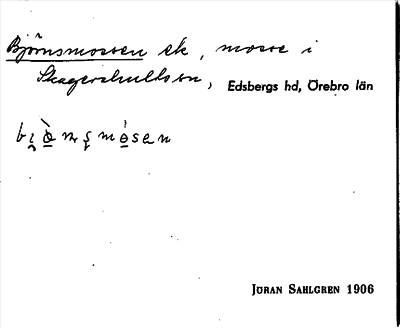 Björnsmossen ek, mosse i
Skagershults sn, Edsbergs hd, Örebro län
JÖRAN SAHLGREN 1906